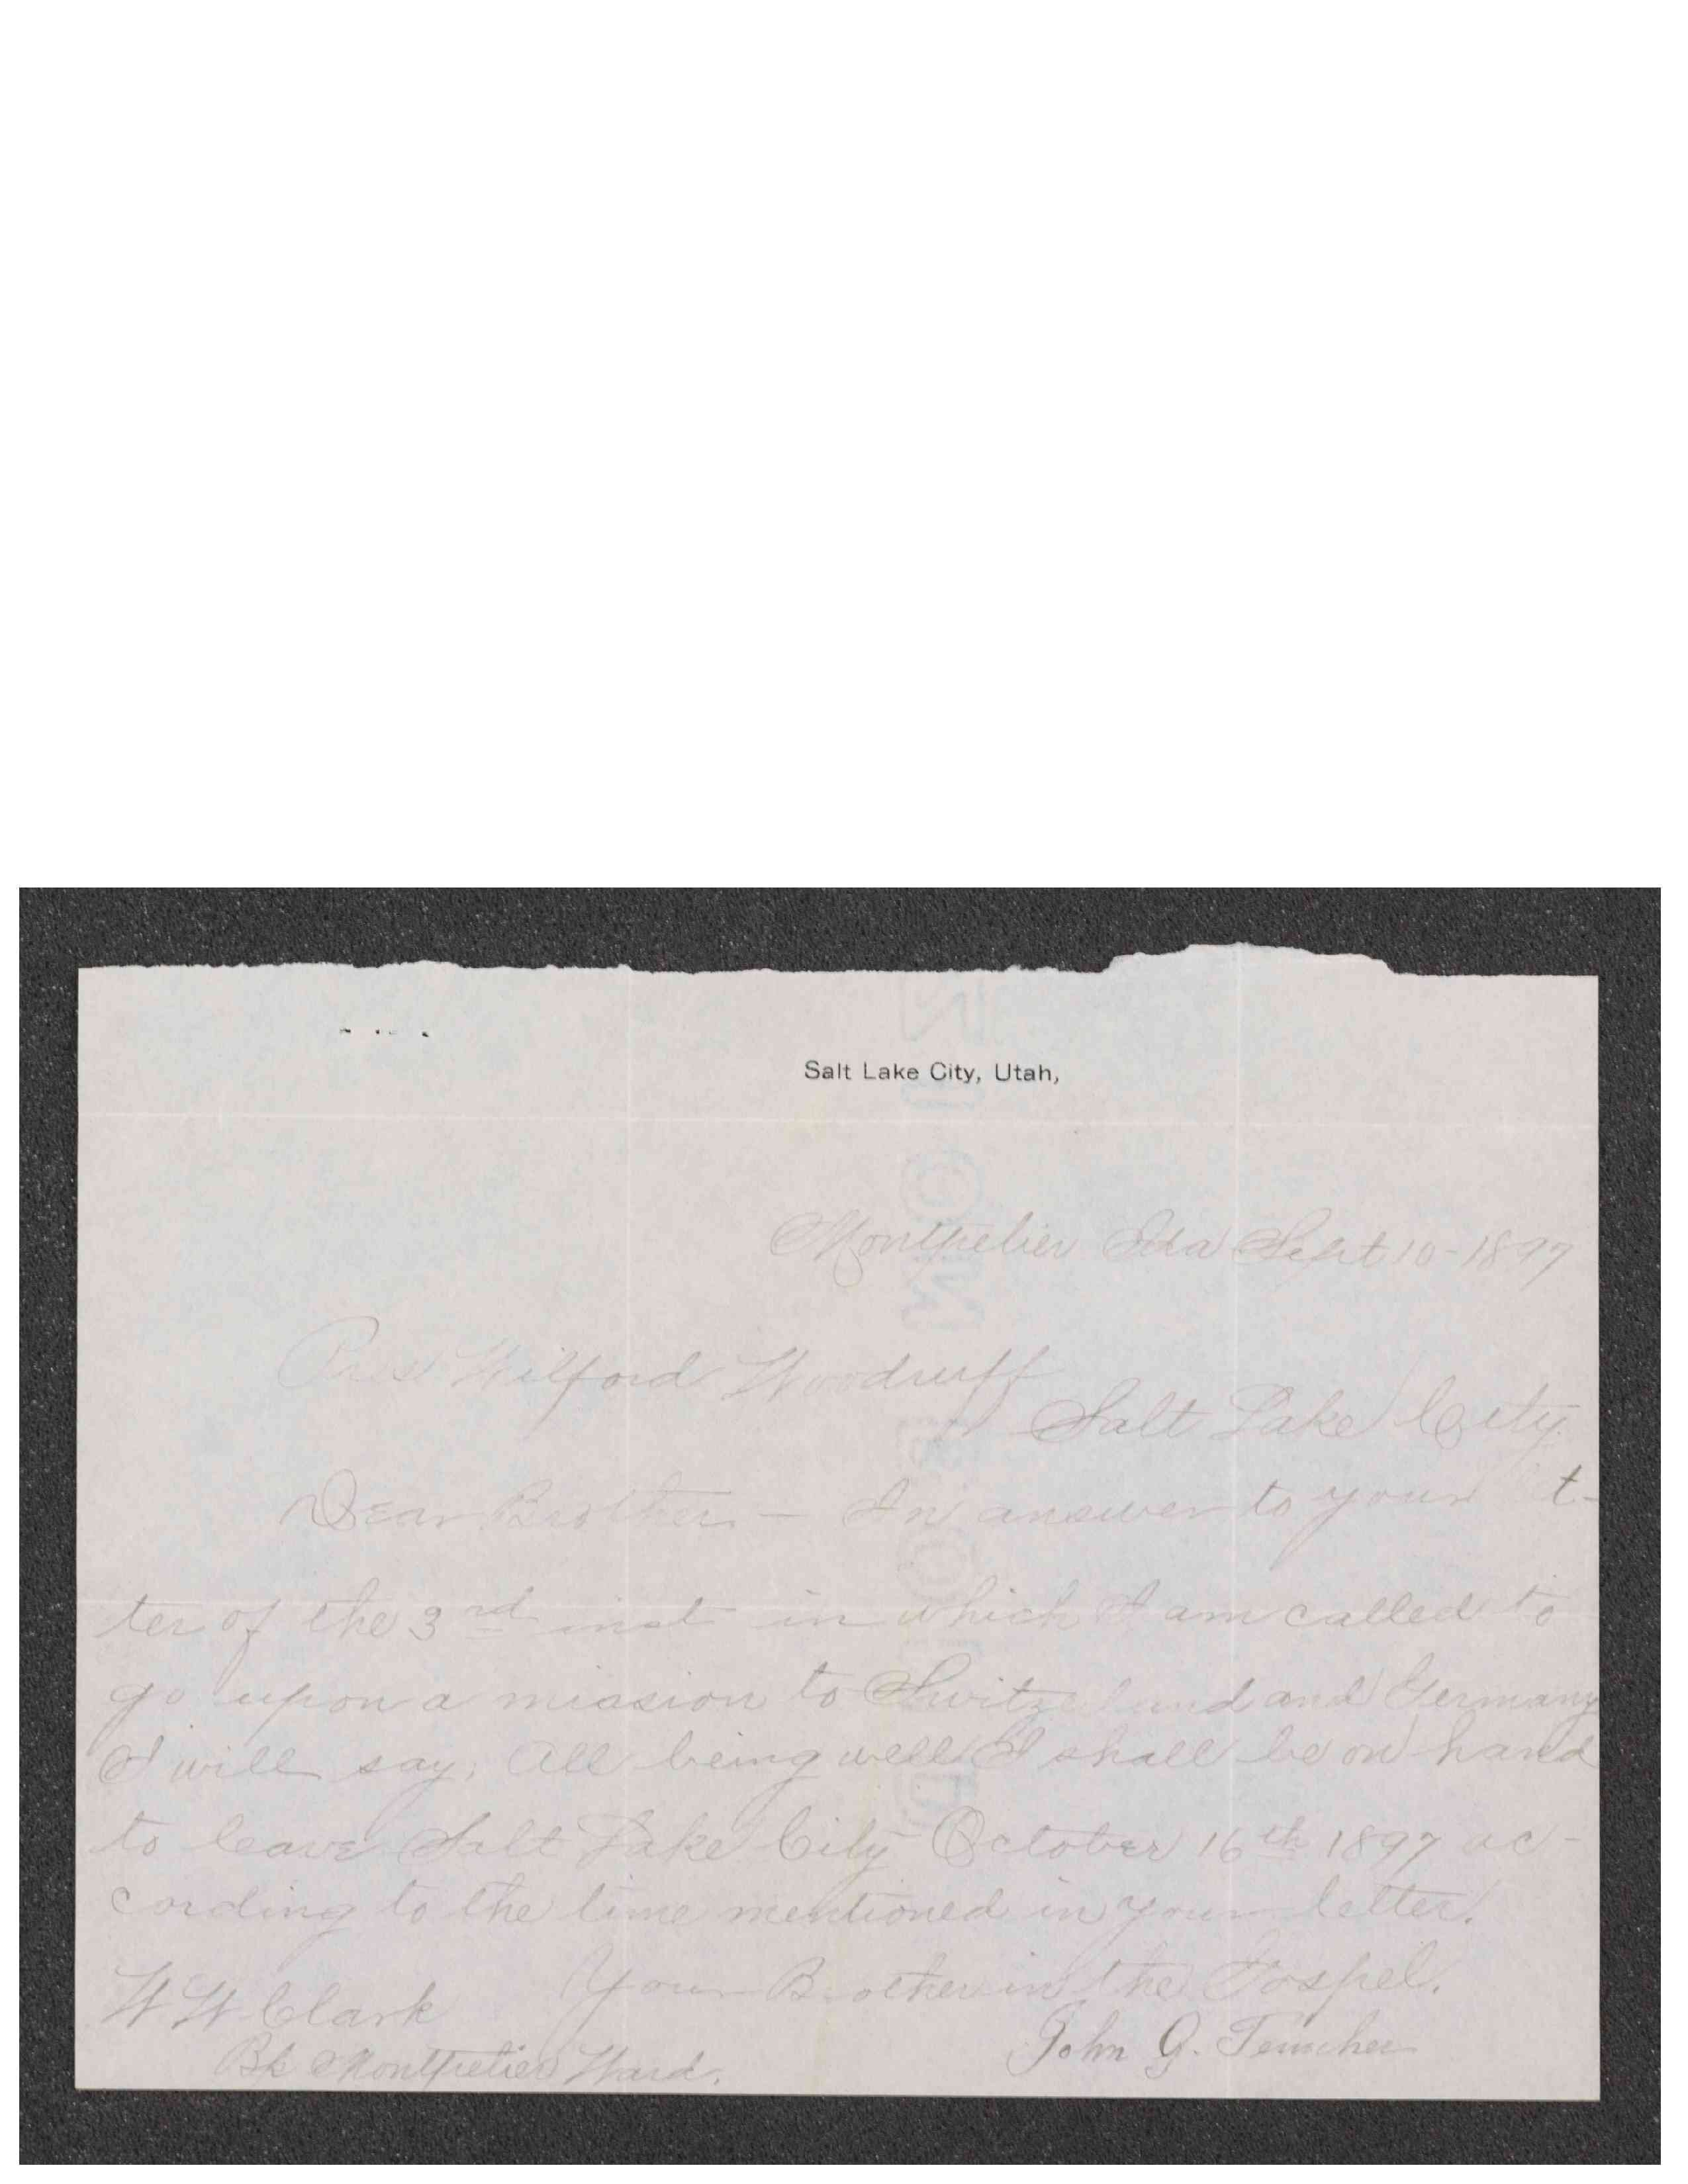 Salt Lake City, Utah,
Montpelier Ida Sept 10-1897
Pres Wilford Woodruff
Salt Lake City.
Dear Brother - In answer to your let-
ter of the 3rd inst in which I am called to
go upon a mission to Switzerland and Germany
I will say; All being well I shall be on hand
to leave Salt Lake City October 16th 1897 ac-
cording to the time mentioned in your letter.
Your Brother in the Gospel.
John G. Teuscher
W W Clark
Bp Montpelier Ward.